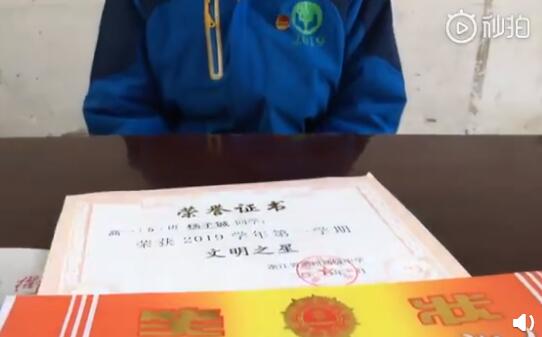 秒拍
荣誉证书
高一(6)班 杨子诚 同学:
荣获 2019 学年第一学期
文明之星
奖状